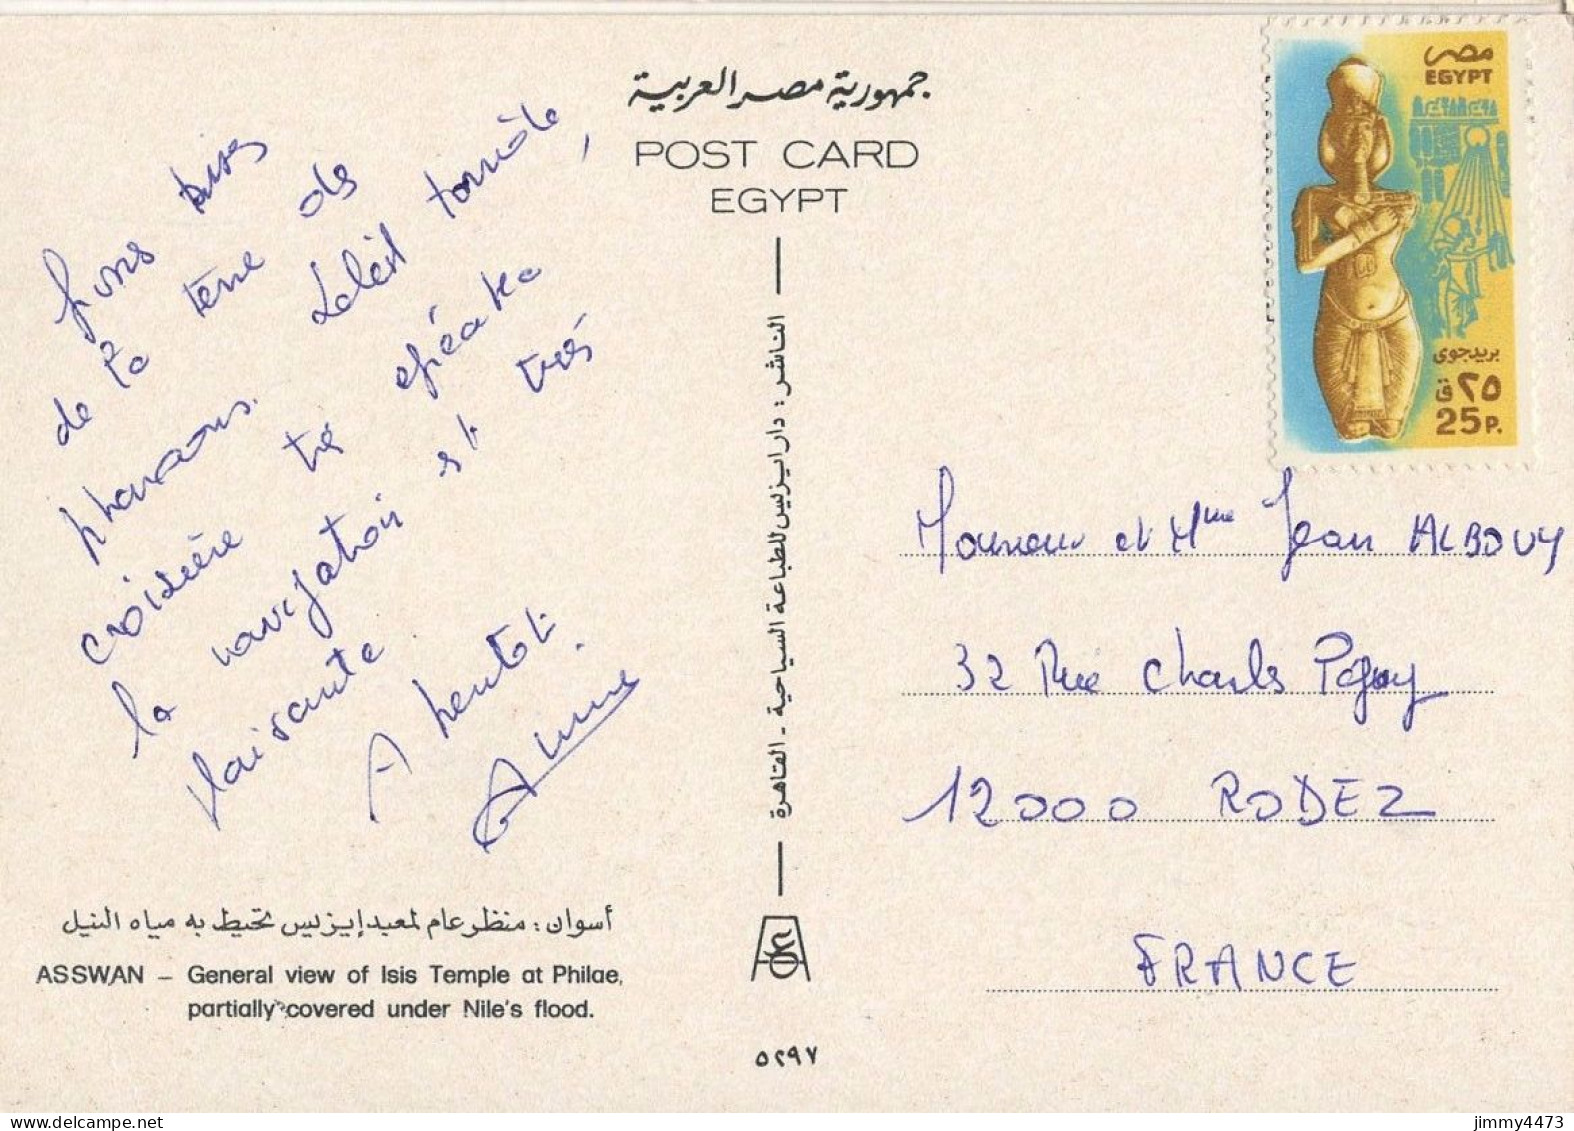 جمهورية مصر العربية
POST CARD
EGYPT
مصر
EGYPT
بريد جوى
٢٥ ق
25 P.
Gros bises
de la terre des
pharaons. Soleil torride,
croisière très agréable
la navigation est très
plaisante
A bientôt.
Anne
الناشر : دار ايزيس للطباعة السياحية - القاهرة
Monsieur et Mme Jean ALBOUY
32 Rue Charles Péguy
12000 RODEZ
FRANCE
أسوان : منظر عام لمعبد إيزيس تحيط به مياه النيل
ASSWAN – General view of Isis Temple at Philae,
partially covered under Nile's flood.
٥٢٩٧
jimmy4473